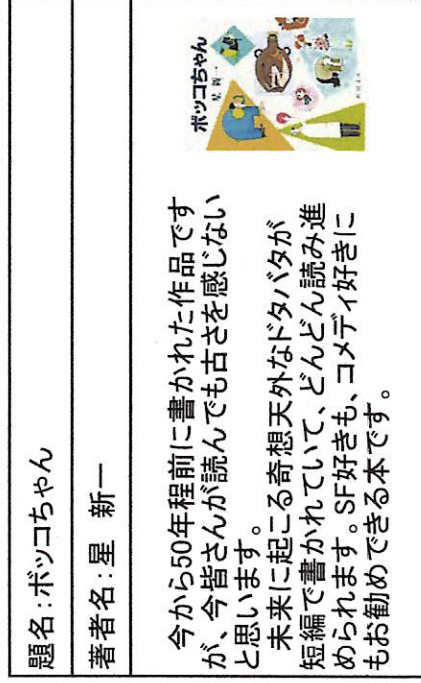 題名:ボッコちゃん
著者名:星　新一
今から50年程前に書かれた作品です
が、今皆さんが読んでも古さを感じない
と思います。
未来に起こる奇想天外なドタバタが
短編で書かれていて、どんどん読み進
められます。SF好きも、コメディ好きに
もお勧めできる本です。
ボッコちゃん
星 新一
新潮文庫